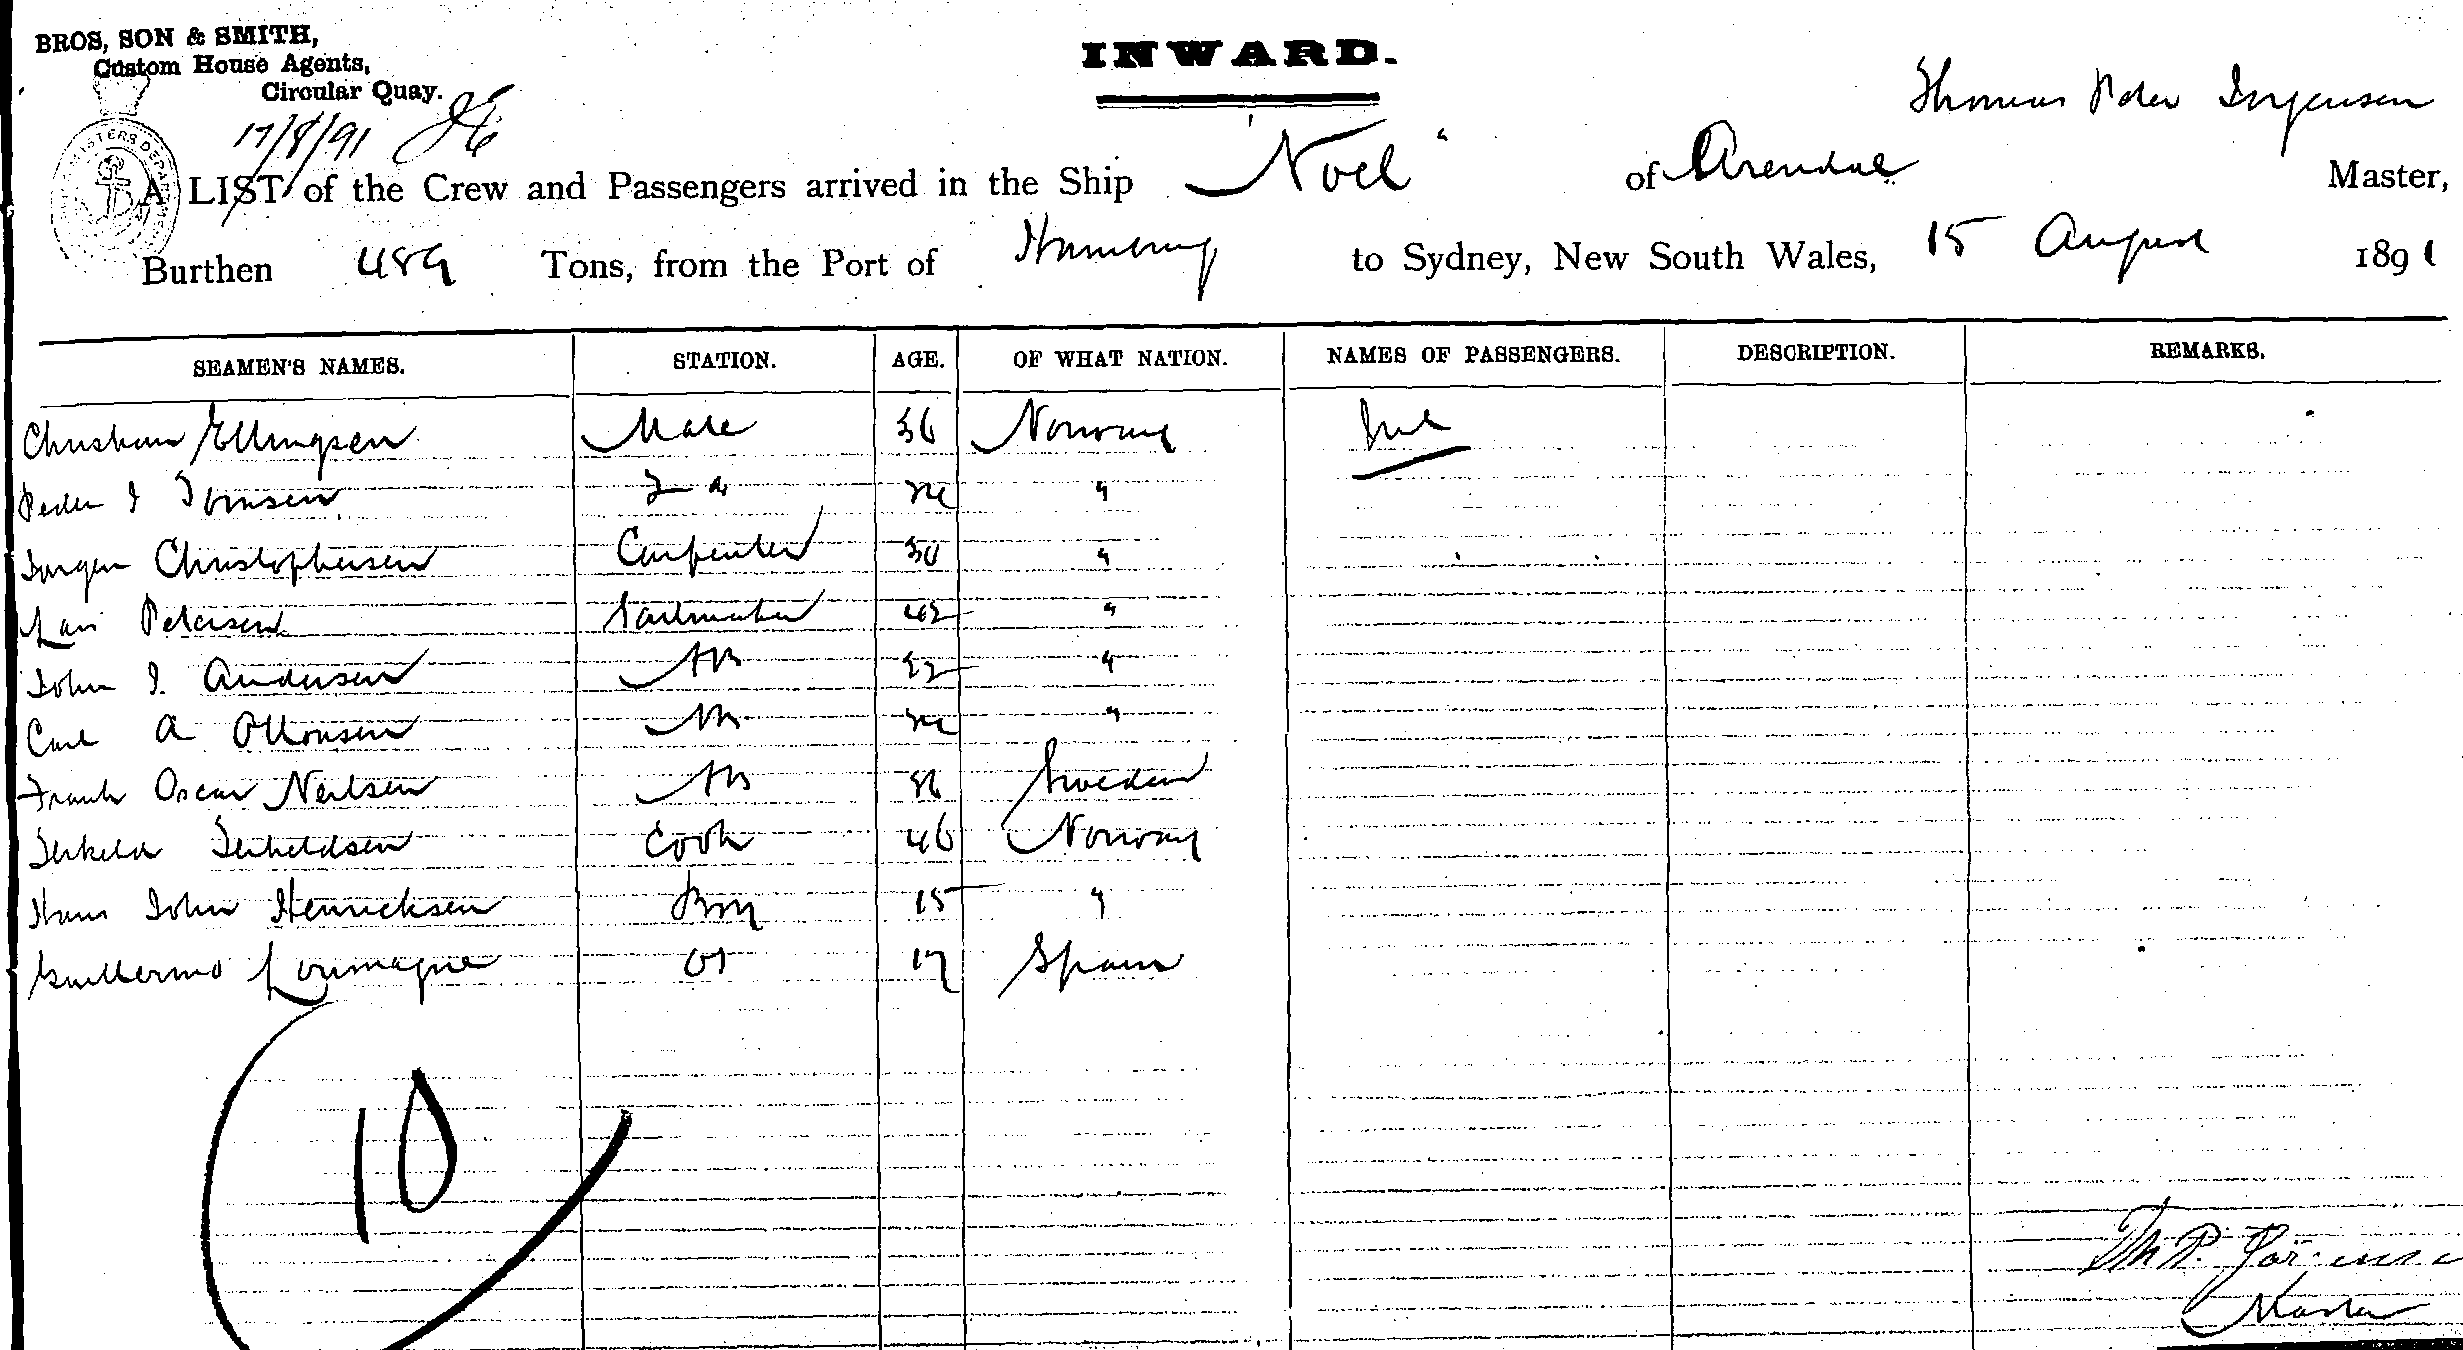 BROS, SON & SMITH,
Custom House Agents,
Circular Quay.
17/8/91
INWARD.
Thomas Peter Jorgensen
A LIST of the Crew and Passengers arrived in the Ship "Noel" of Arendal Master,
Burthen 489 Tons, from the Port of to Sydney, New South Wales, 15 August 1891
SEAMEN'S NAMES. STATION. AGE. OF WHAT NATION. NAMES OF PASSENGERS. DESCRIPTION. REMARKS.
Christian Ellingsen Mate 36 Norway Nil
Peder J "
Jorgen Christophersen Carpenter 30 "
Lars Petersen Sailmaker 42 "
John J. Andersen AB "
Carl A Ottonsen AB "
Frank Oscar Neilsen AB Sweden
Terkeld Terkeldsen Cook 46 Norway
Hans John Henricksen Boy 15 "
Guillermo Loumagne OS 17 Spain
10
Th. P. Jörgensen
Master